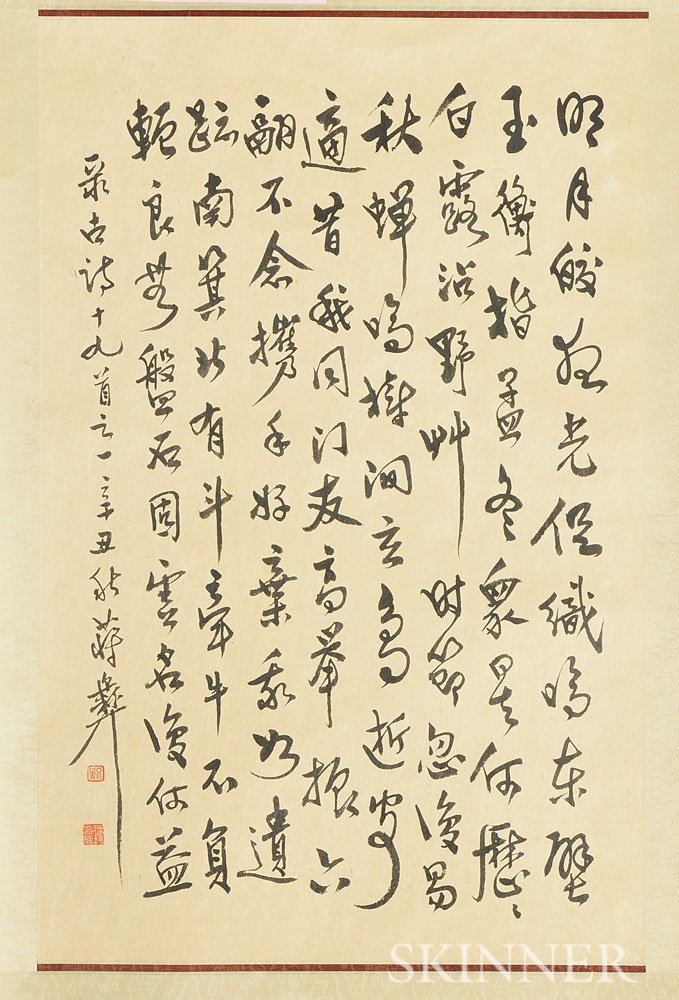 明月皎夜光促織鳴東壁
玉衡指孟冬眾星何歷〻
白露沾野艸時節忽復易
秋蟬鳴樹間玄鳥逝安
適昔我同門友高舉振六
翮不念攜手好棄我如遺
跡南箕北有斗牽牛不負
軛良無盤石固虛名復何益
古詩十九首之一辛丑秋蔣彝
SKINNER